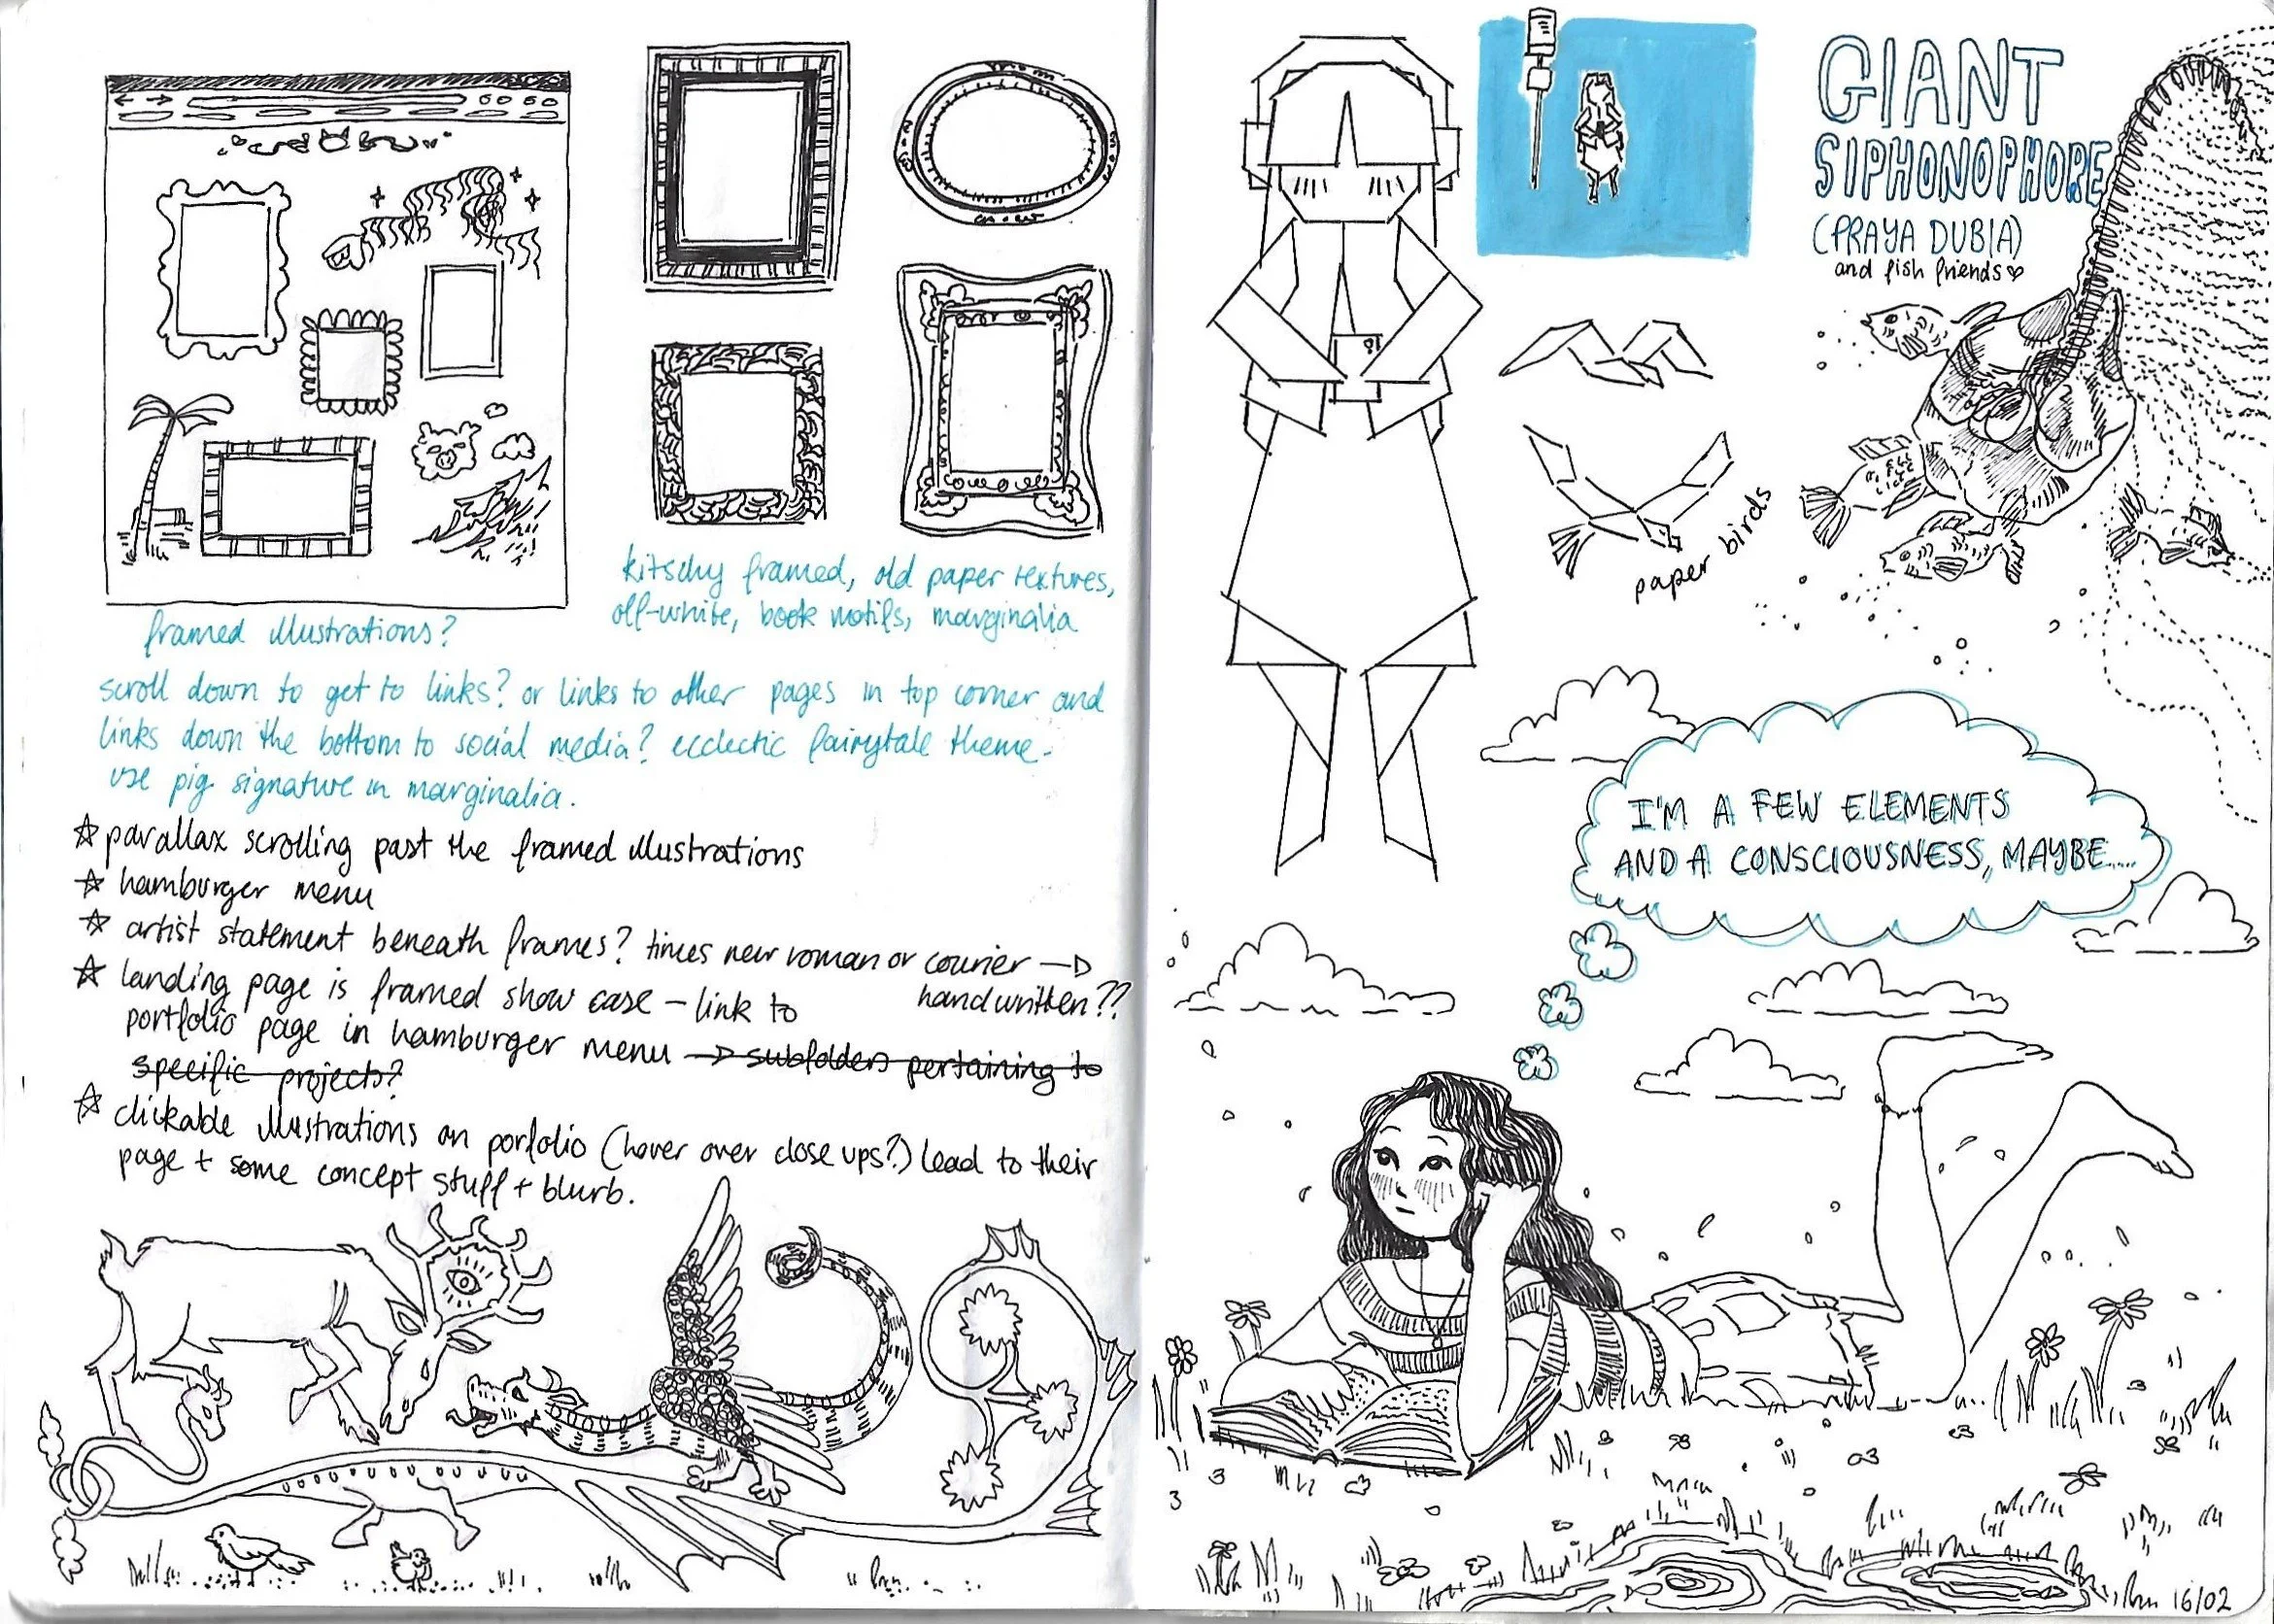 kitschy framed, old paper textures,
off-white, book motifs, marginalia
framed illustrations?
scroll down to get to links? or links to other pages in top corner and
links down the bottom to social media? ecclectic fairytale theme-
use pig signature in marginalia.
☆ parallax scrolling past the framed illustrations
☆ hamburger menu
☆ artist statement beneath frames? times new roman or courier →
handwritten??
☆ landing page is framed show case - link to
portfolio page in hamburger menu → subfolders pertaining to
specific projects?
☆ clickable illustrations on porfolio (hover over close ups?) lead to their
page + some concept stuff + blurb.
GIANT
SIPHONOPHORE
(PRAYA DUBIA)
and fish friends♡
paper birds
I'M A FEW ELEMENTS
AND A CONSCIOUSNESS, MAYBE....
16/02